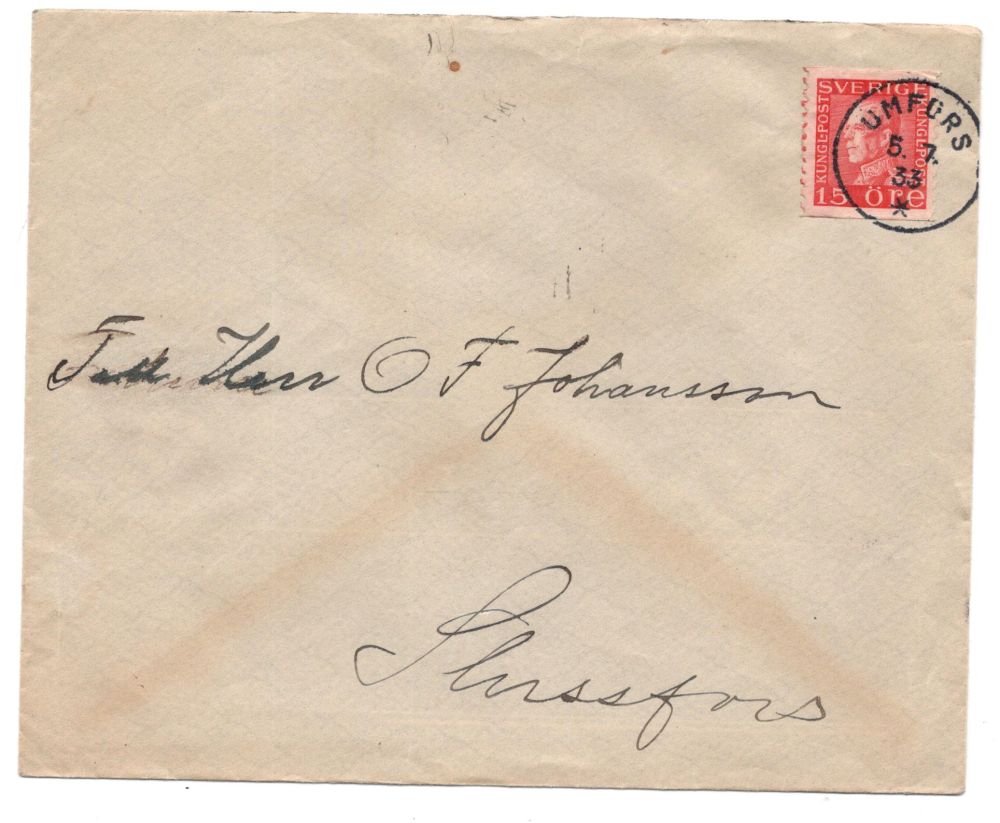 SVERIGE
KUNGL·POST
KUNGL·POST
15 öre
UMFORS
5. 7.
33
Herr O F Johansson
Slussfors